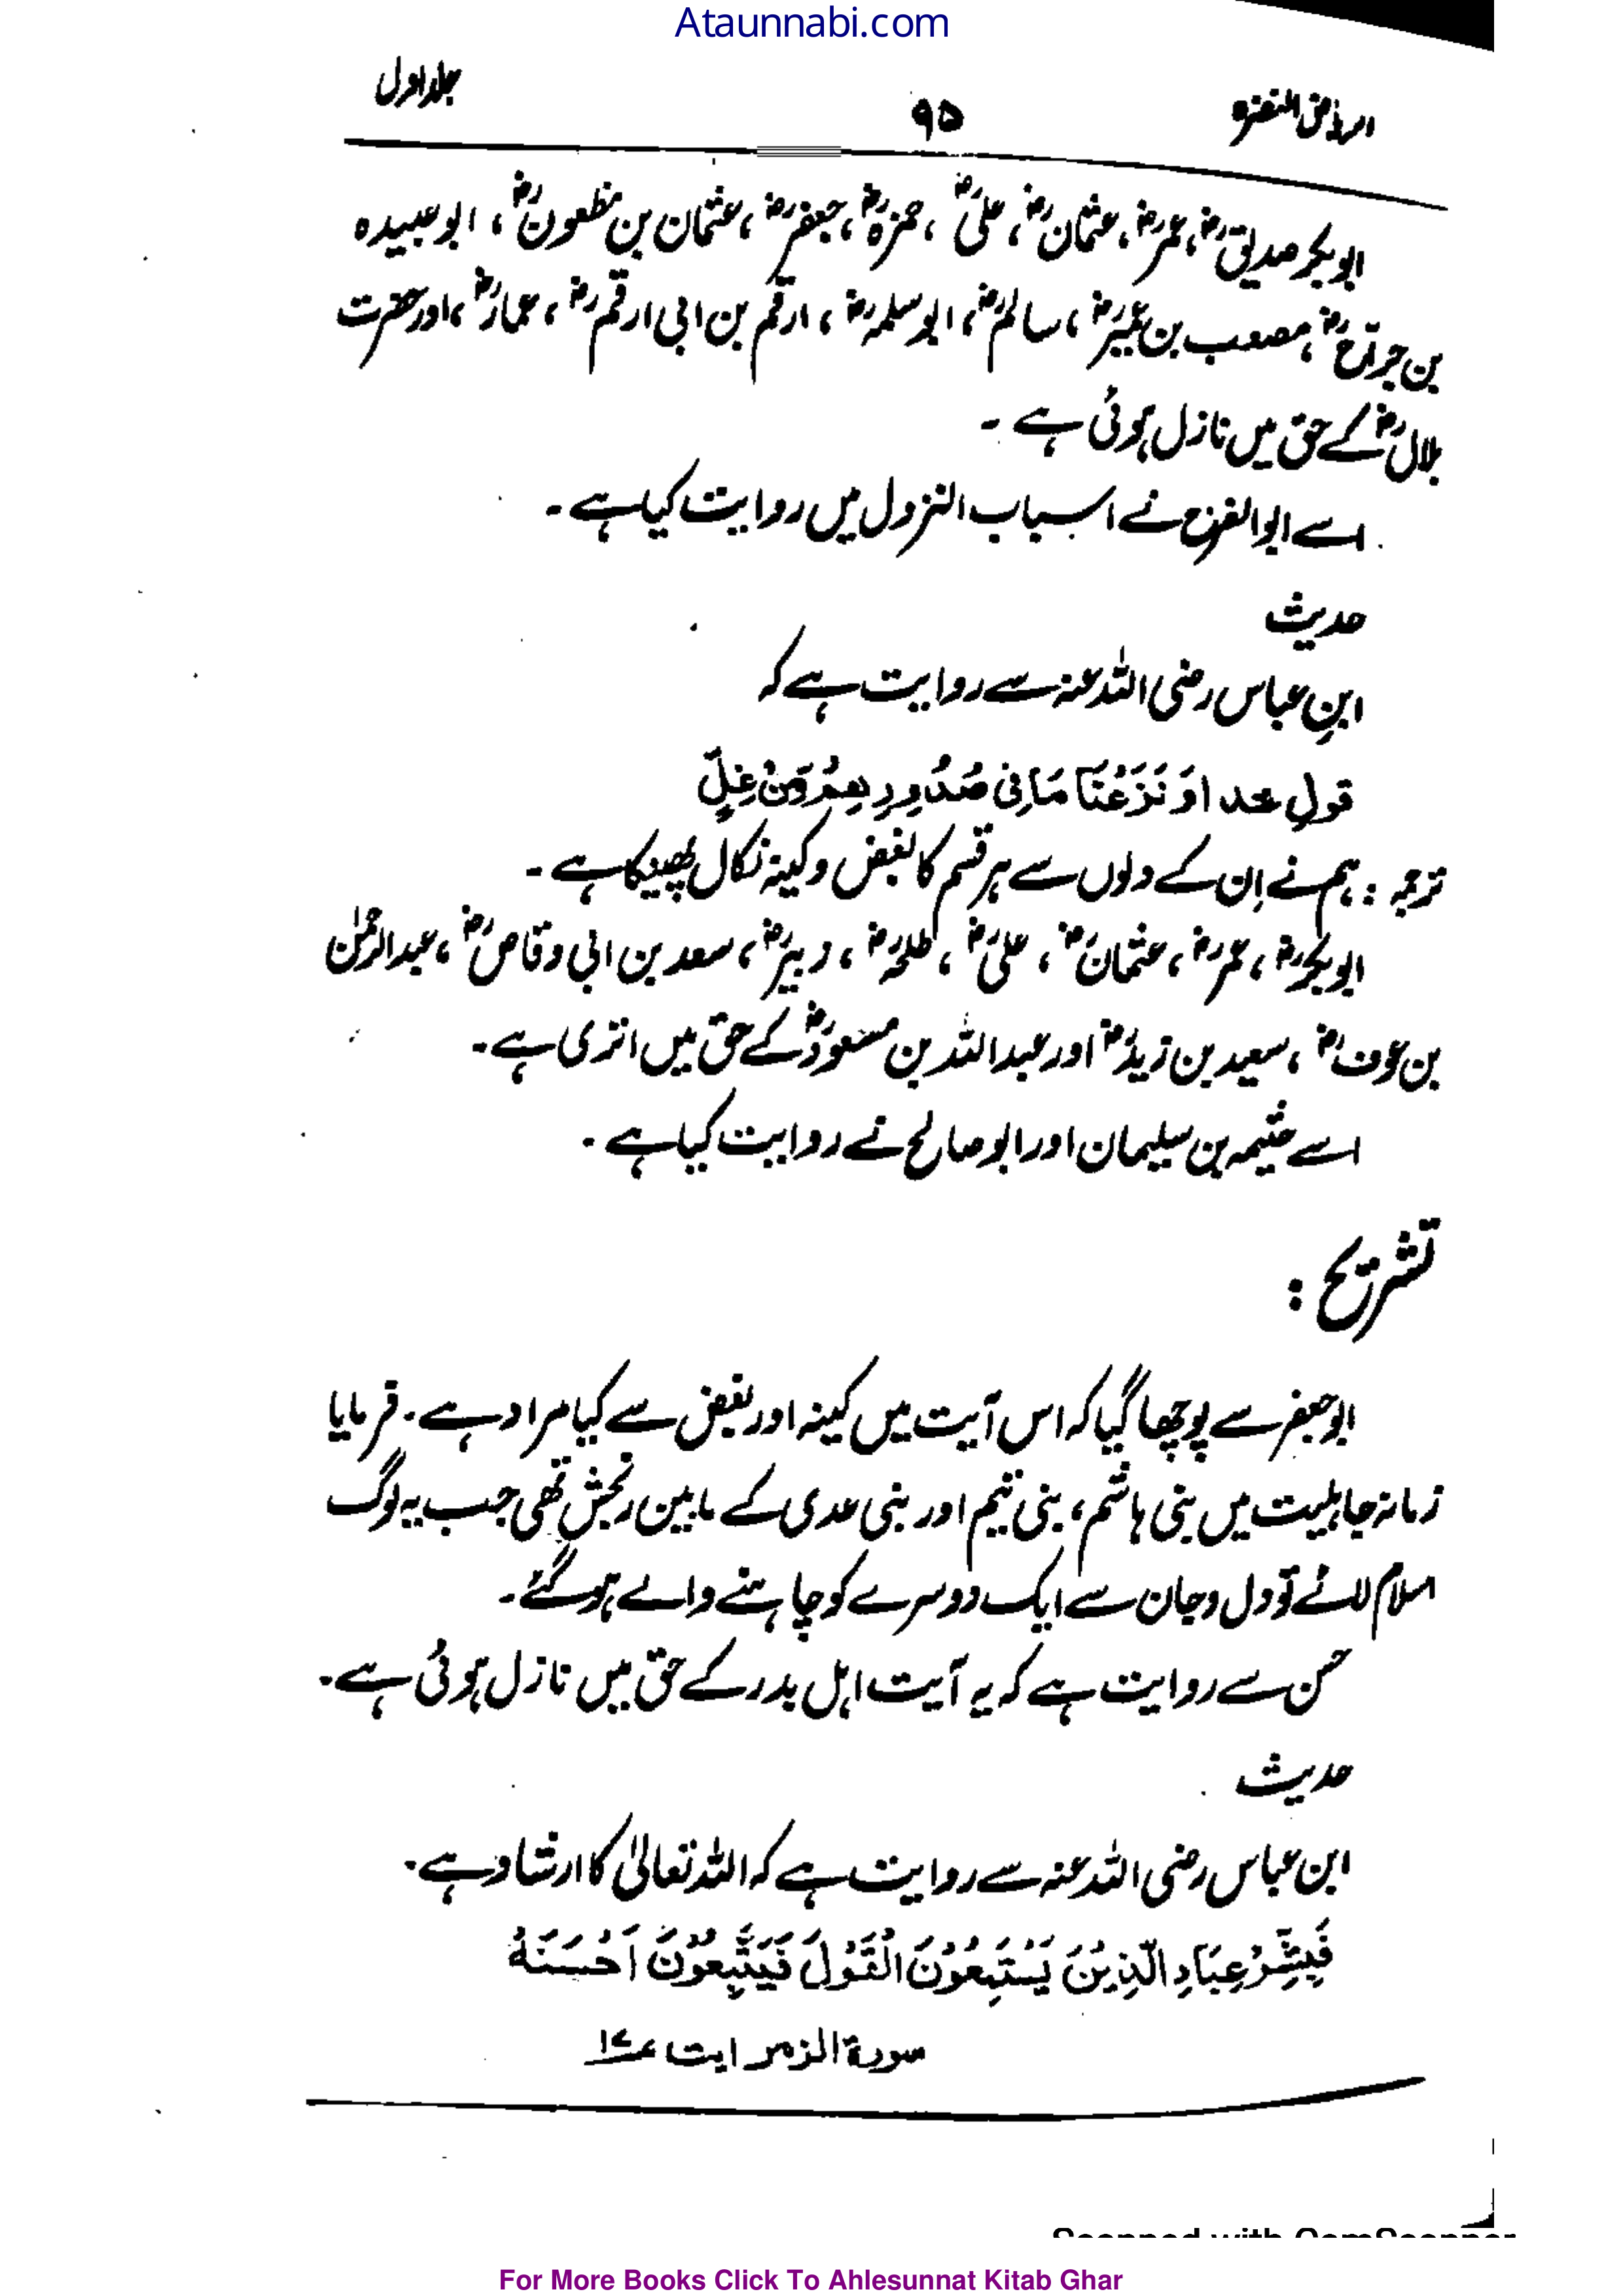 Ataunnabi.com
الریاض النضرہ ۹۵ جلد اول
ابوبکر صدیقؓ، عمرؓ، عثمانؓ، علیؓ، حمزہؓ، جعفرؓ، عثمان بن مظعونؓ، ابو عبیدہ
بن جراحؓ، مصعب بن عمیرؓ، سالمؓ، ابو سلمہؓ، ارقم بن ابی ارقمؓ، عمارؓ، اور حضرت
بلالؓ کے حق میں نازل ہوئی ہے ۔
اسے ابوالفرج نے اسباب النزول میں روایت کیا ہے ۔
حدیث
ابنِ عباس رضی اللہ عنہ سے روایت ہے کہ
قولِ خدا وَنَزَعْنَا مَا فِی صُدُورِهِمْ مِّنْ غِلٍّ
ترجمہ : ہم نے اِن کے دلوں سے ہر قسم کا بغض و کینہ نکال پھینکا ہے ۔
ابوبکرؓ، عمرؓ، عثمانؓ، علیؓ، طلحہؓ، زبیرؓ، سعد بن ابی وقاصؓ، عبدالرحمٰن
بن عوفؓ، سعید بن زیدؓ اور عبداللہ بن مسعودؓ کے حق میں اتری ہے ۔
اسے خثیمہ بن سلیمان اور ابو صالح نے روایت کیا ہے ۔
تشریح :
ابو جعفر سے پوچھا گیا کہ اس آیت میں کینہ اور بغض سے کیا مراد ہے ۔ فرمایا
زمانہ جاہلیت میں بنی ہاشم، بنی تیم اور بنی عدی کے مابین رنجش تھی جب یہ لوگ
اسلام لائے تو دل و جان سے ایک دوسرے کو چاہنے والے ہو گئے ۔
حسن سے روایت ہے کہ یہ آیت اہل بدر کے حق میں نازل ہوئی ہے ۔
حدیث
ابن عباس رضی اللہ عنہ سے روایت ہے کہ اللہ تعالیٰ کا ارشاد ہے ۔
فَبَشِّرْ عِبَادِ الَّذِیْنَ یَسْتَمِعُوْنَ الْقَوْلَ فَیَتَّبِعُوْنَ اَحْسَنَهُ
سورۃ الزمر ایت ۱۷
Scanned with CamScanner
For More Books Click To Ahlesunnat Kitab Ghar